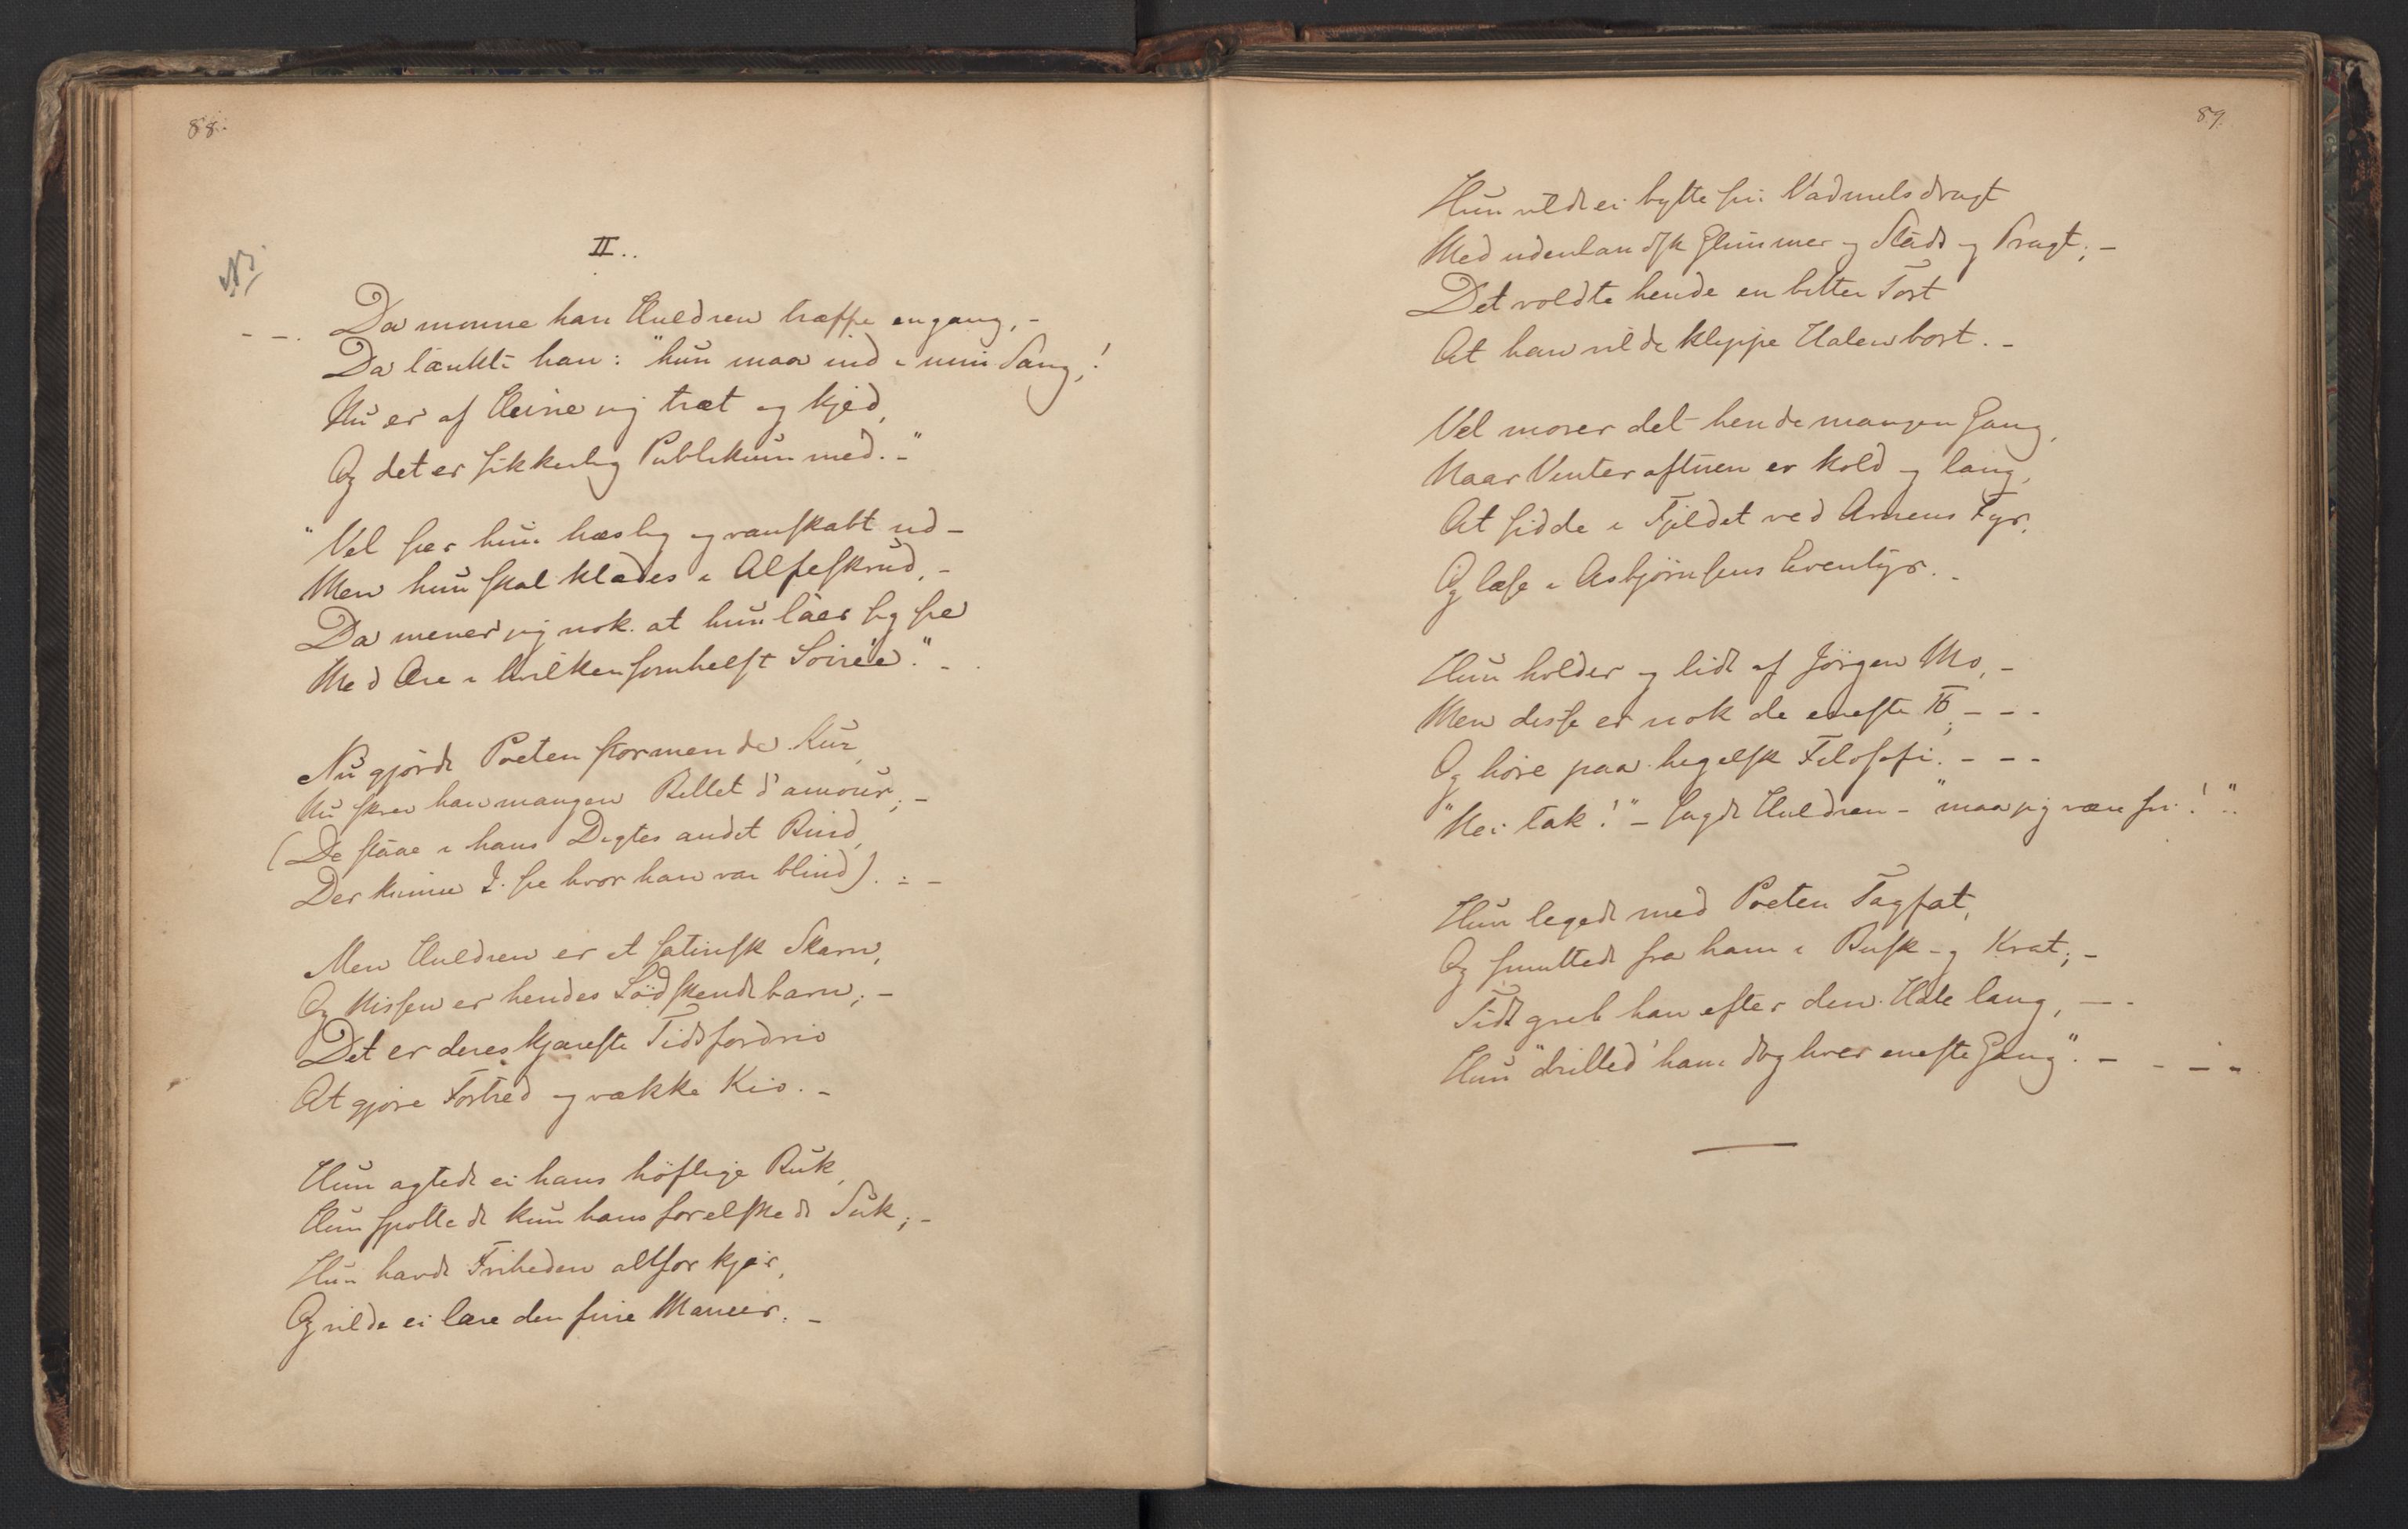 88.
II..
N3
- -. Da monne han Huldren træffe engang, -
Da tænkte han: "hun maa ind i min Sang,!
Nu er af Heine jeg træt og kjed,
Og det er sikkerlig Publikum med." -
"Vel seer hun hæslig og vanskabt ud -
Men hun skal klædes i Alfeskrud, -
Da mener jeg nok at hun låer sig see
Med Ære i hvilkensomhelst Soirée." -
Nu gjorde Poeten stormende Kur,
Nu skrev han mangen Billet d'amour; -
(De stååe i hans Digtes andet Bind,
Der kunne I. see hvor han var blind). : -
Men Huldren er et satirisk Skarn,
Og Nissen er hendes Södskendebarn; -
Det er deres kjæreste Tidsfordriv
At gjöre Fortred og vække Kiv. -
Hun agtede ei hans höflige Buk,
Hun spottede kun hans forelskede Suk; -
Hun havde Friheden altfor kjær,
Og vilde ei lære den fine Maneer. -
89.
Hun vilde ei bytte sin Vadmelsdragt
Med udenlandsk Glimmer og Stads og Pragt; -
Det voldte hende en bitter Tort
At han vilde klippe Halen bort. -
Vel morer det hende mangen Gang,
Naar Vinteraftnen er kold og lang,
At sidde i Fjeldet ved Arnens Fyr,
Og læse i Asbjørnsens Eventyr. -
Hun holder og lidt af Jörgen Mo, -
Men disse er nok de eneste To; - - -
Og höre paa hegelsk Filosofi. - - -
"Nei tak!" - sagde Huldren - "maa jeg være fri!"..
Hun legede med Poeten Tagfat,
Og smuttede fra ham i Busk og Krat; -
Tidt greb han efter den Hale lang, - -
Hun "drilled' ham dog hver eneste Gang". - - - -